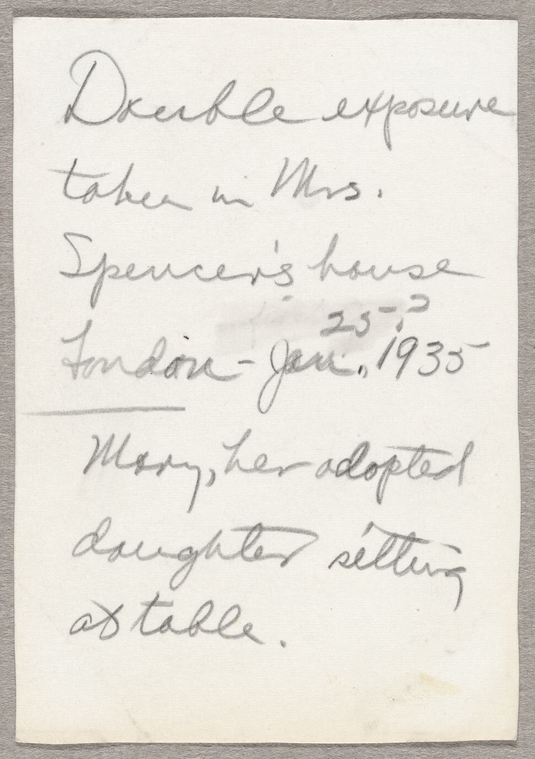 Double exposure
taken in Mrs.
Spencer's house
25-?
London - Jan., 1935
Mary, her adopted
daughter sitting
at table.